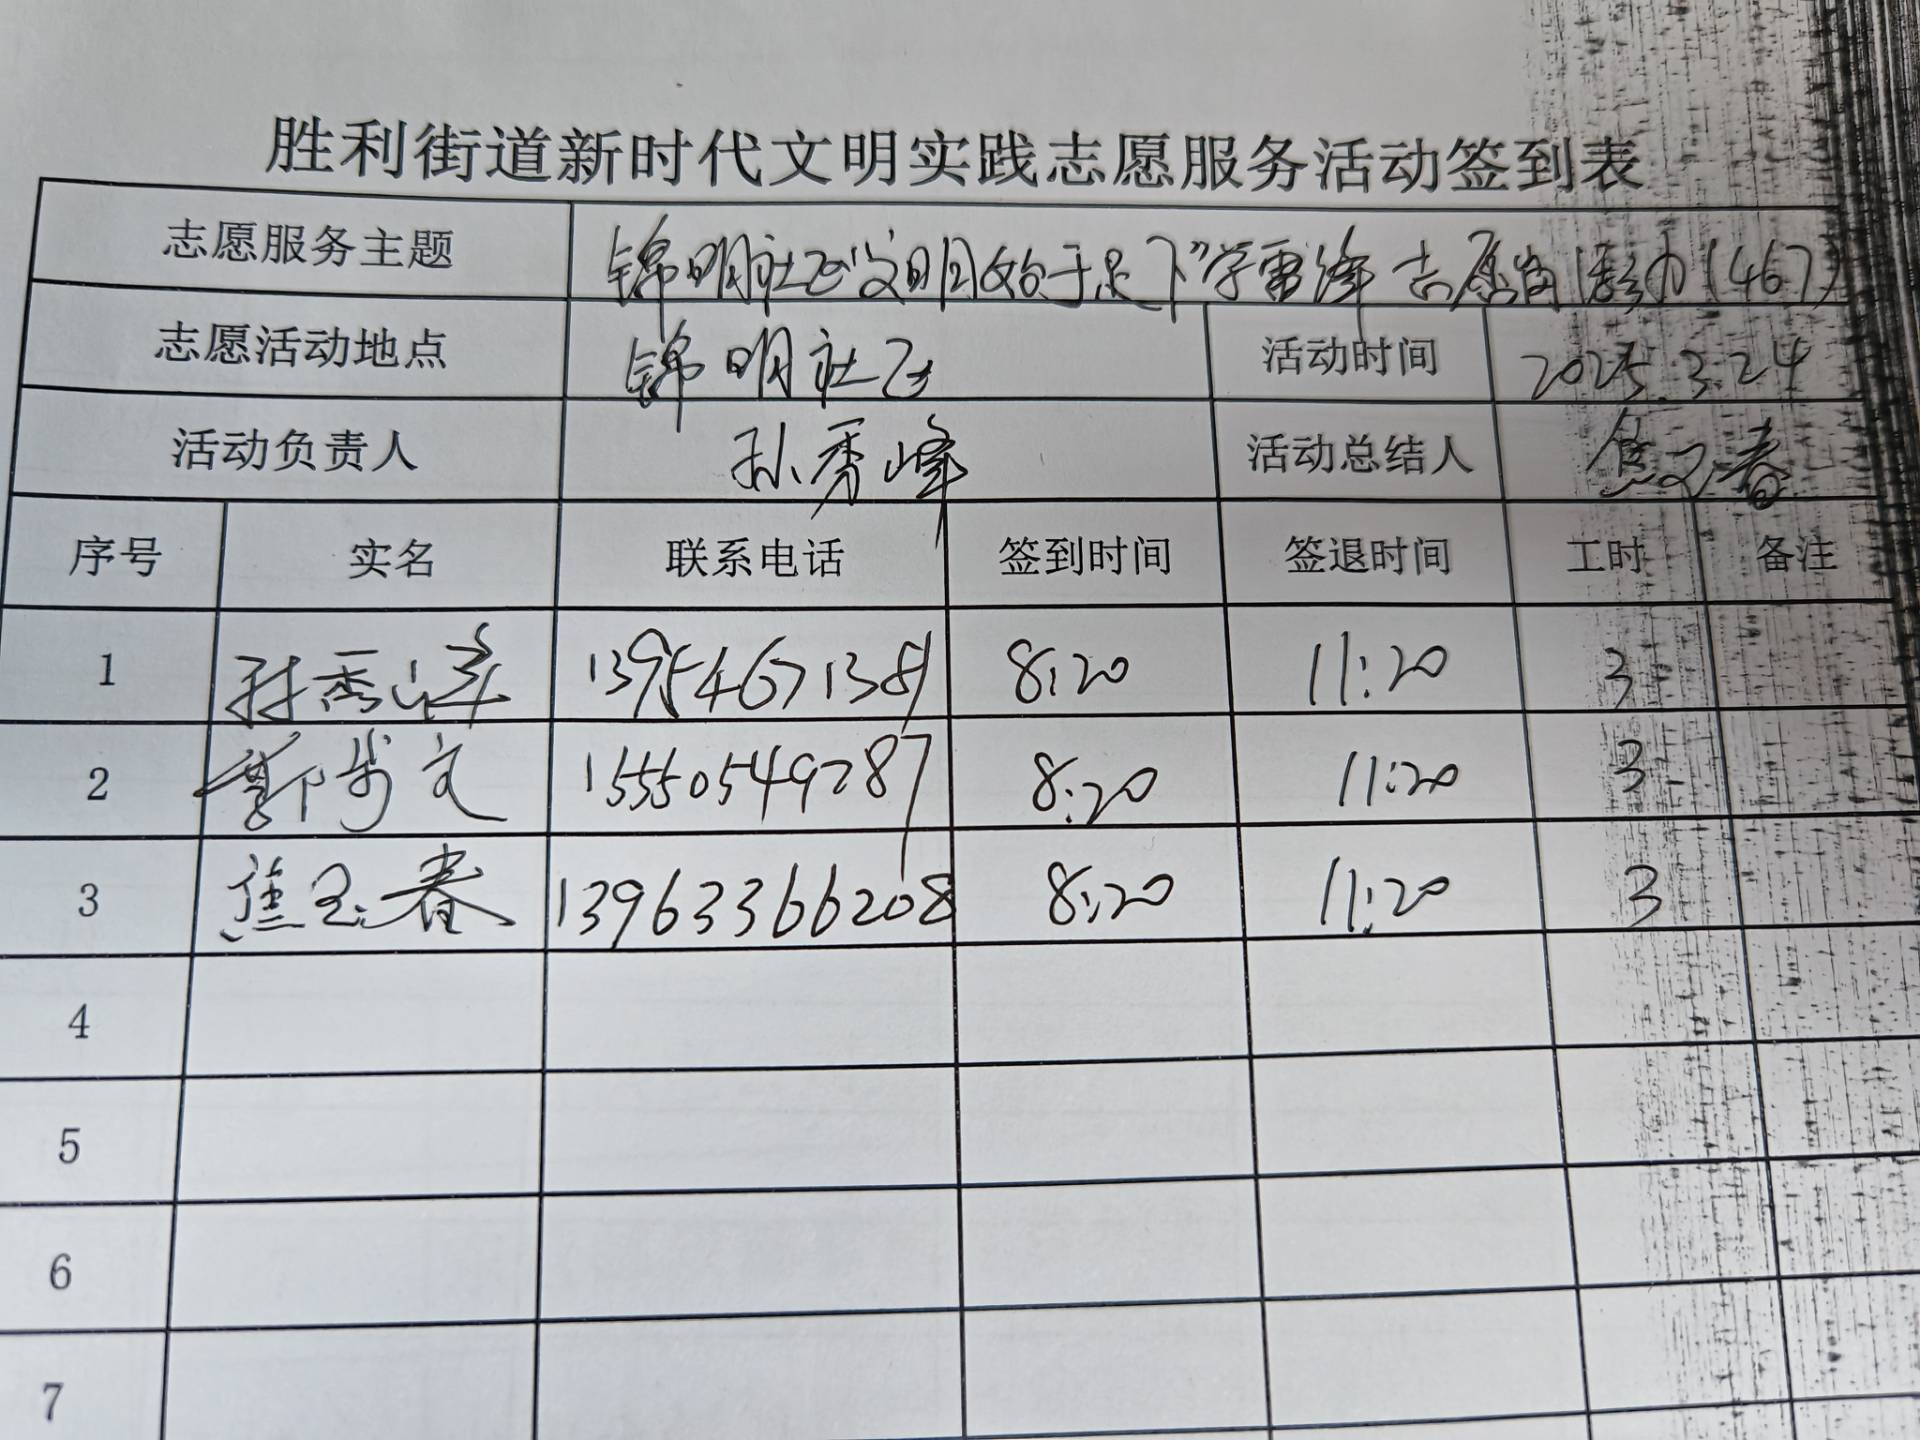 胜利街道新时代文明实践志愿服务活动签到表
志愿服务主题 锦明社区"文明始于足下"学雷锋志愿服活动(467)
志愿活动地点 锦明社区 活动时间 2025.3.24
活动负责人 孙秀峰 活动总结人 焦玉春
序号 实名 联系电话 签到时间 签退时间 工时 备注
1 孙秀峰 13954671381 8:20 11:20 3
2 郭步文 15550549287 8:20 11:20 3
3 焦玉春 13963366208 8:20 11:20 3
4
5
6
7